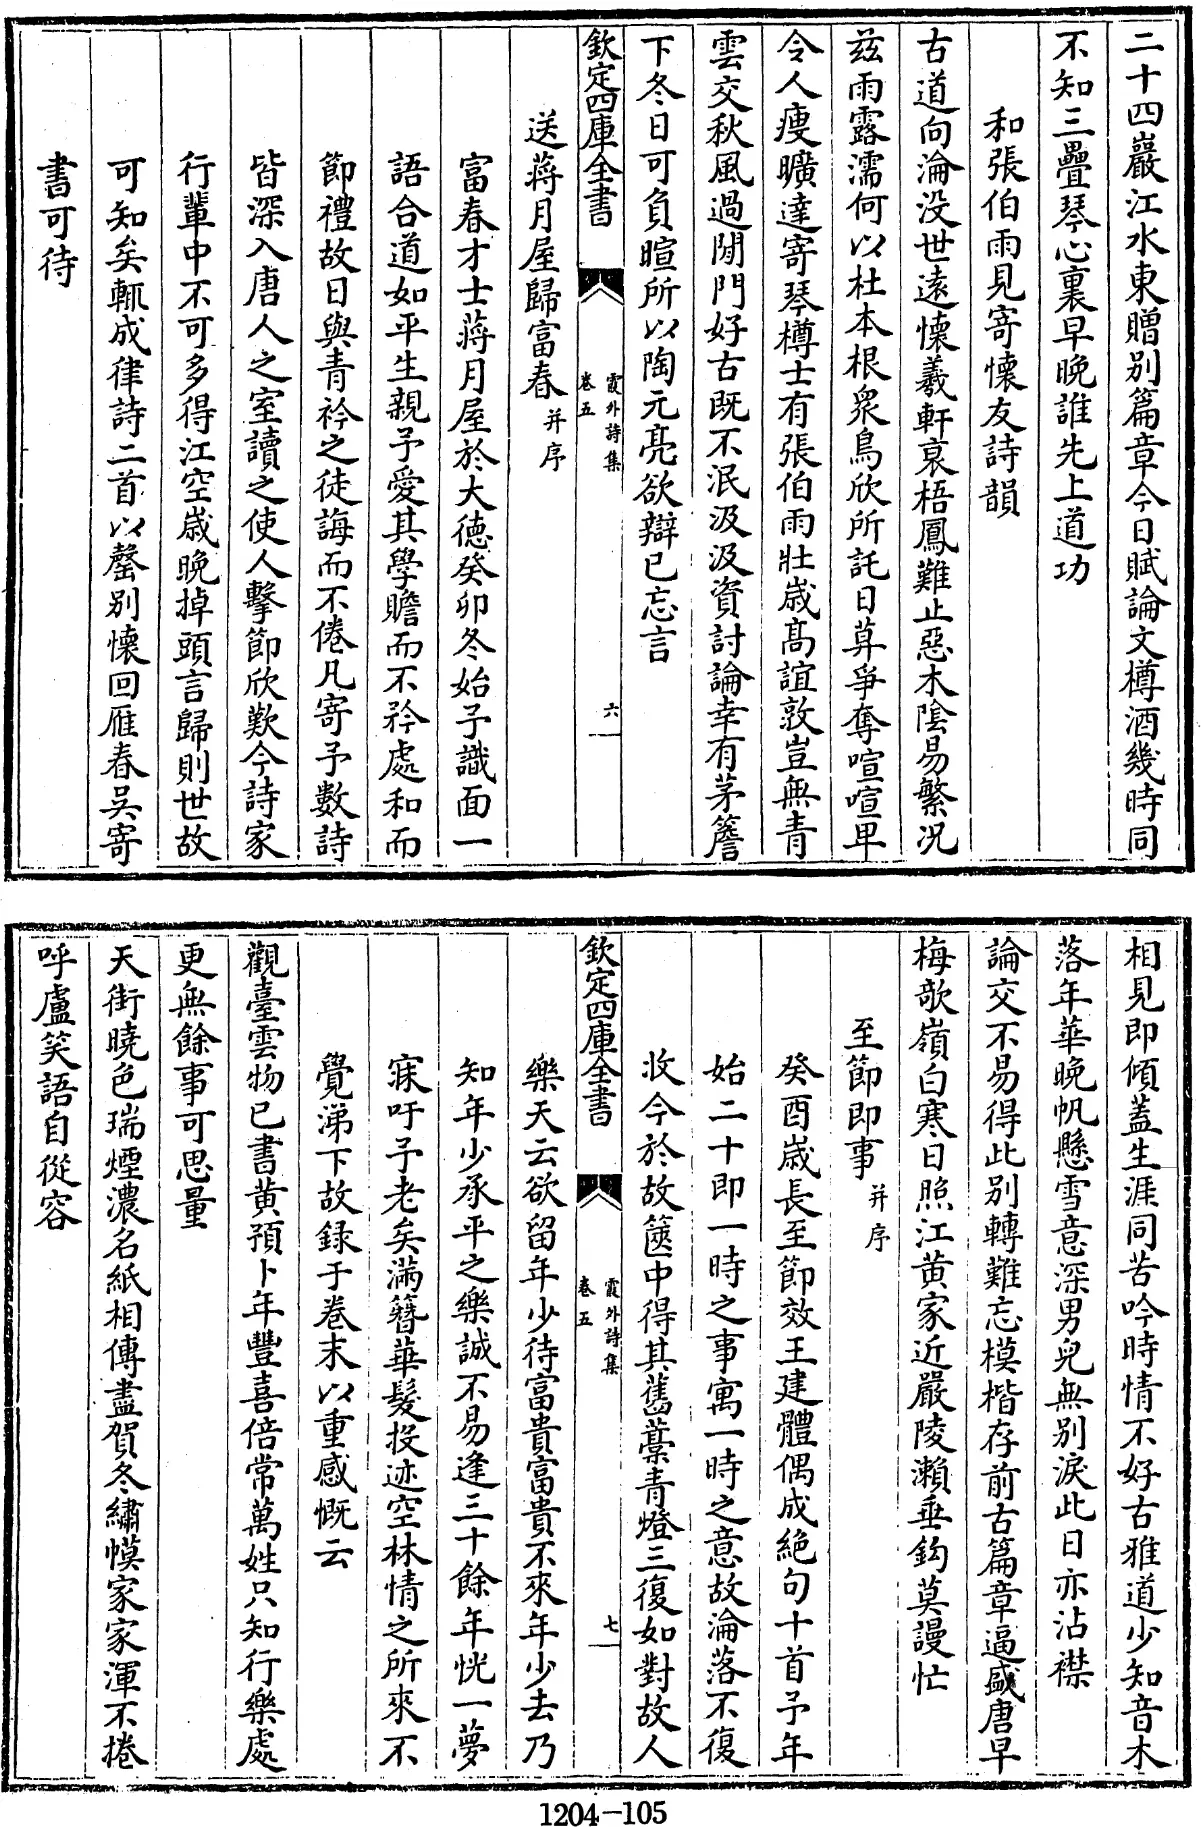 二十四巖江水東贈别篇章今日賦論文樽酒幾時同
不知三疊琴心裏早晚誰先上道功
和張伯雨見寄懷友詩韻
古道向淪没世遠懷羲軒哀梧鳳難止惡木陰易繁况
兹雨露濡何以杜本根衆鳥欣所託日莫爭奪喧喧卑
令人瘦曠達寄琴樽士有張伯雨壯歲髙誼敦豈無青
雲交秋風過閒門好古既不泯汲汲資討論幸有茅簷
下冬日可負暄所以陶元亮欲辯已忘言
欽定四庫全書
霞外詩集
卷五
六
送蔣月屋歸富春并序
富春才士蔣月屋於大德癸卯冬始予識面一
語合道如平生親予愛其學贍而不矜處和而
節禮故日與青衿之徒誨而不倦凡寄予數詩
皆深入唐人之室讀之使人擊節欣歎今詩家
行輩中不可多得江空歲晚掉頭言歸則世故
可知矣輒成律詩二首以罄别懷回雁春吳寄
書可待
相見即傾蓋生涯同苦吟時情不好古雅道少知音木
落年華晚帆懸雪意深男兒無别淚此日亦沾襟
論交不易得此别轉難忘模楷存前古篇章逼盛唐早
梅欹嶺白寒日照江黄家近嚴陵瀨垂鈎莫謾忙
至節即事并序
癸酉歲長至節效王建體偶成絶句十首予年
始二十即一時之事寓一時之意故淪落不復
收今於故篋中得其舊藁青燈三復如對故人
欽定四庫全書
霞外詩集
卷五
七
樂天云欲留年少待富貴富貴不來年少去乃
知年少承平之樂誠不易逢三十餘年恍一夢
寐吁予老矣滿簪華髮投迹空林情之所來不
覺涕下故録于卷末以重感慨云
觀臺雲物已書黄預卜年豐喜倍常萬姓只知行樂處
更無餘事可思量
天街曉色瑞煙濃名紙相傳盡賀冬繡幙家家渾不捲
呼盧笑語自從容
1204-105